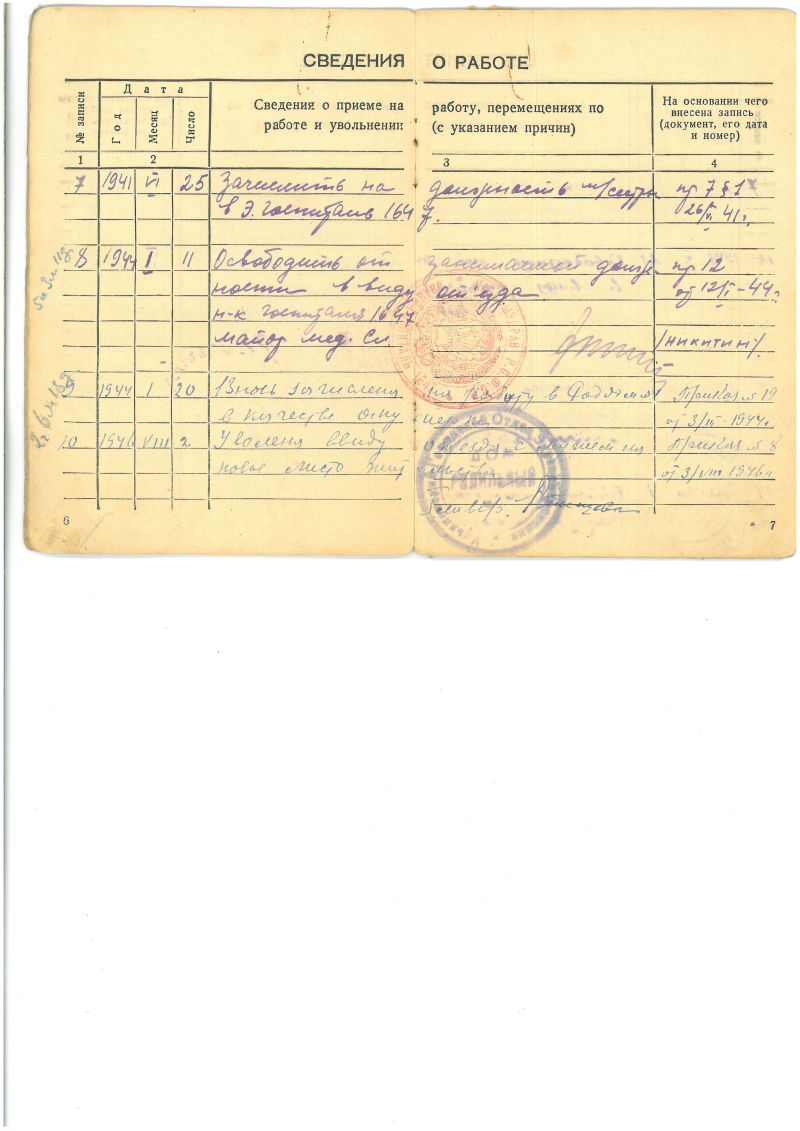 СВЕДЕНИЯ О РАБОТЕ
№ записи
Дата
Год
Месяц
Число
Сведения о приеме на работу, перемещениях по
работе и увольнении (с указанием причин)
На основании чего
внесена запись
(документ, его дата
и номер)
1 2 3 4
7 1941 VI 25 Зачислить на должность м/сестры пр 7 § 1
в Э. Госпиталь 1647. 26/VI 41 г.
8 1944 I 11 Освободить от занимаемой долж- пр 12
ности в виду от 12/I-44 г.
н-к госпиталя 1647
майор мед. Сл /никитин/.
9 1944 I 20 Вновь зачислена на работу в Приказ № 19
в качестве
10 1946 VIII 2 Уволена ввиду отъезда с мужем на Приказ № 8
новое место жительства. от 3/VIII 1946 г
ДОМ
РОДИЛЬНЫЙ
6
7